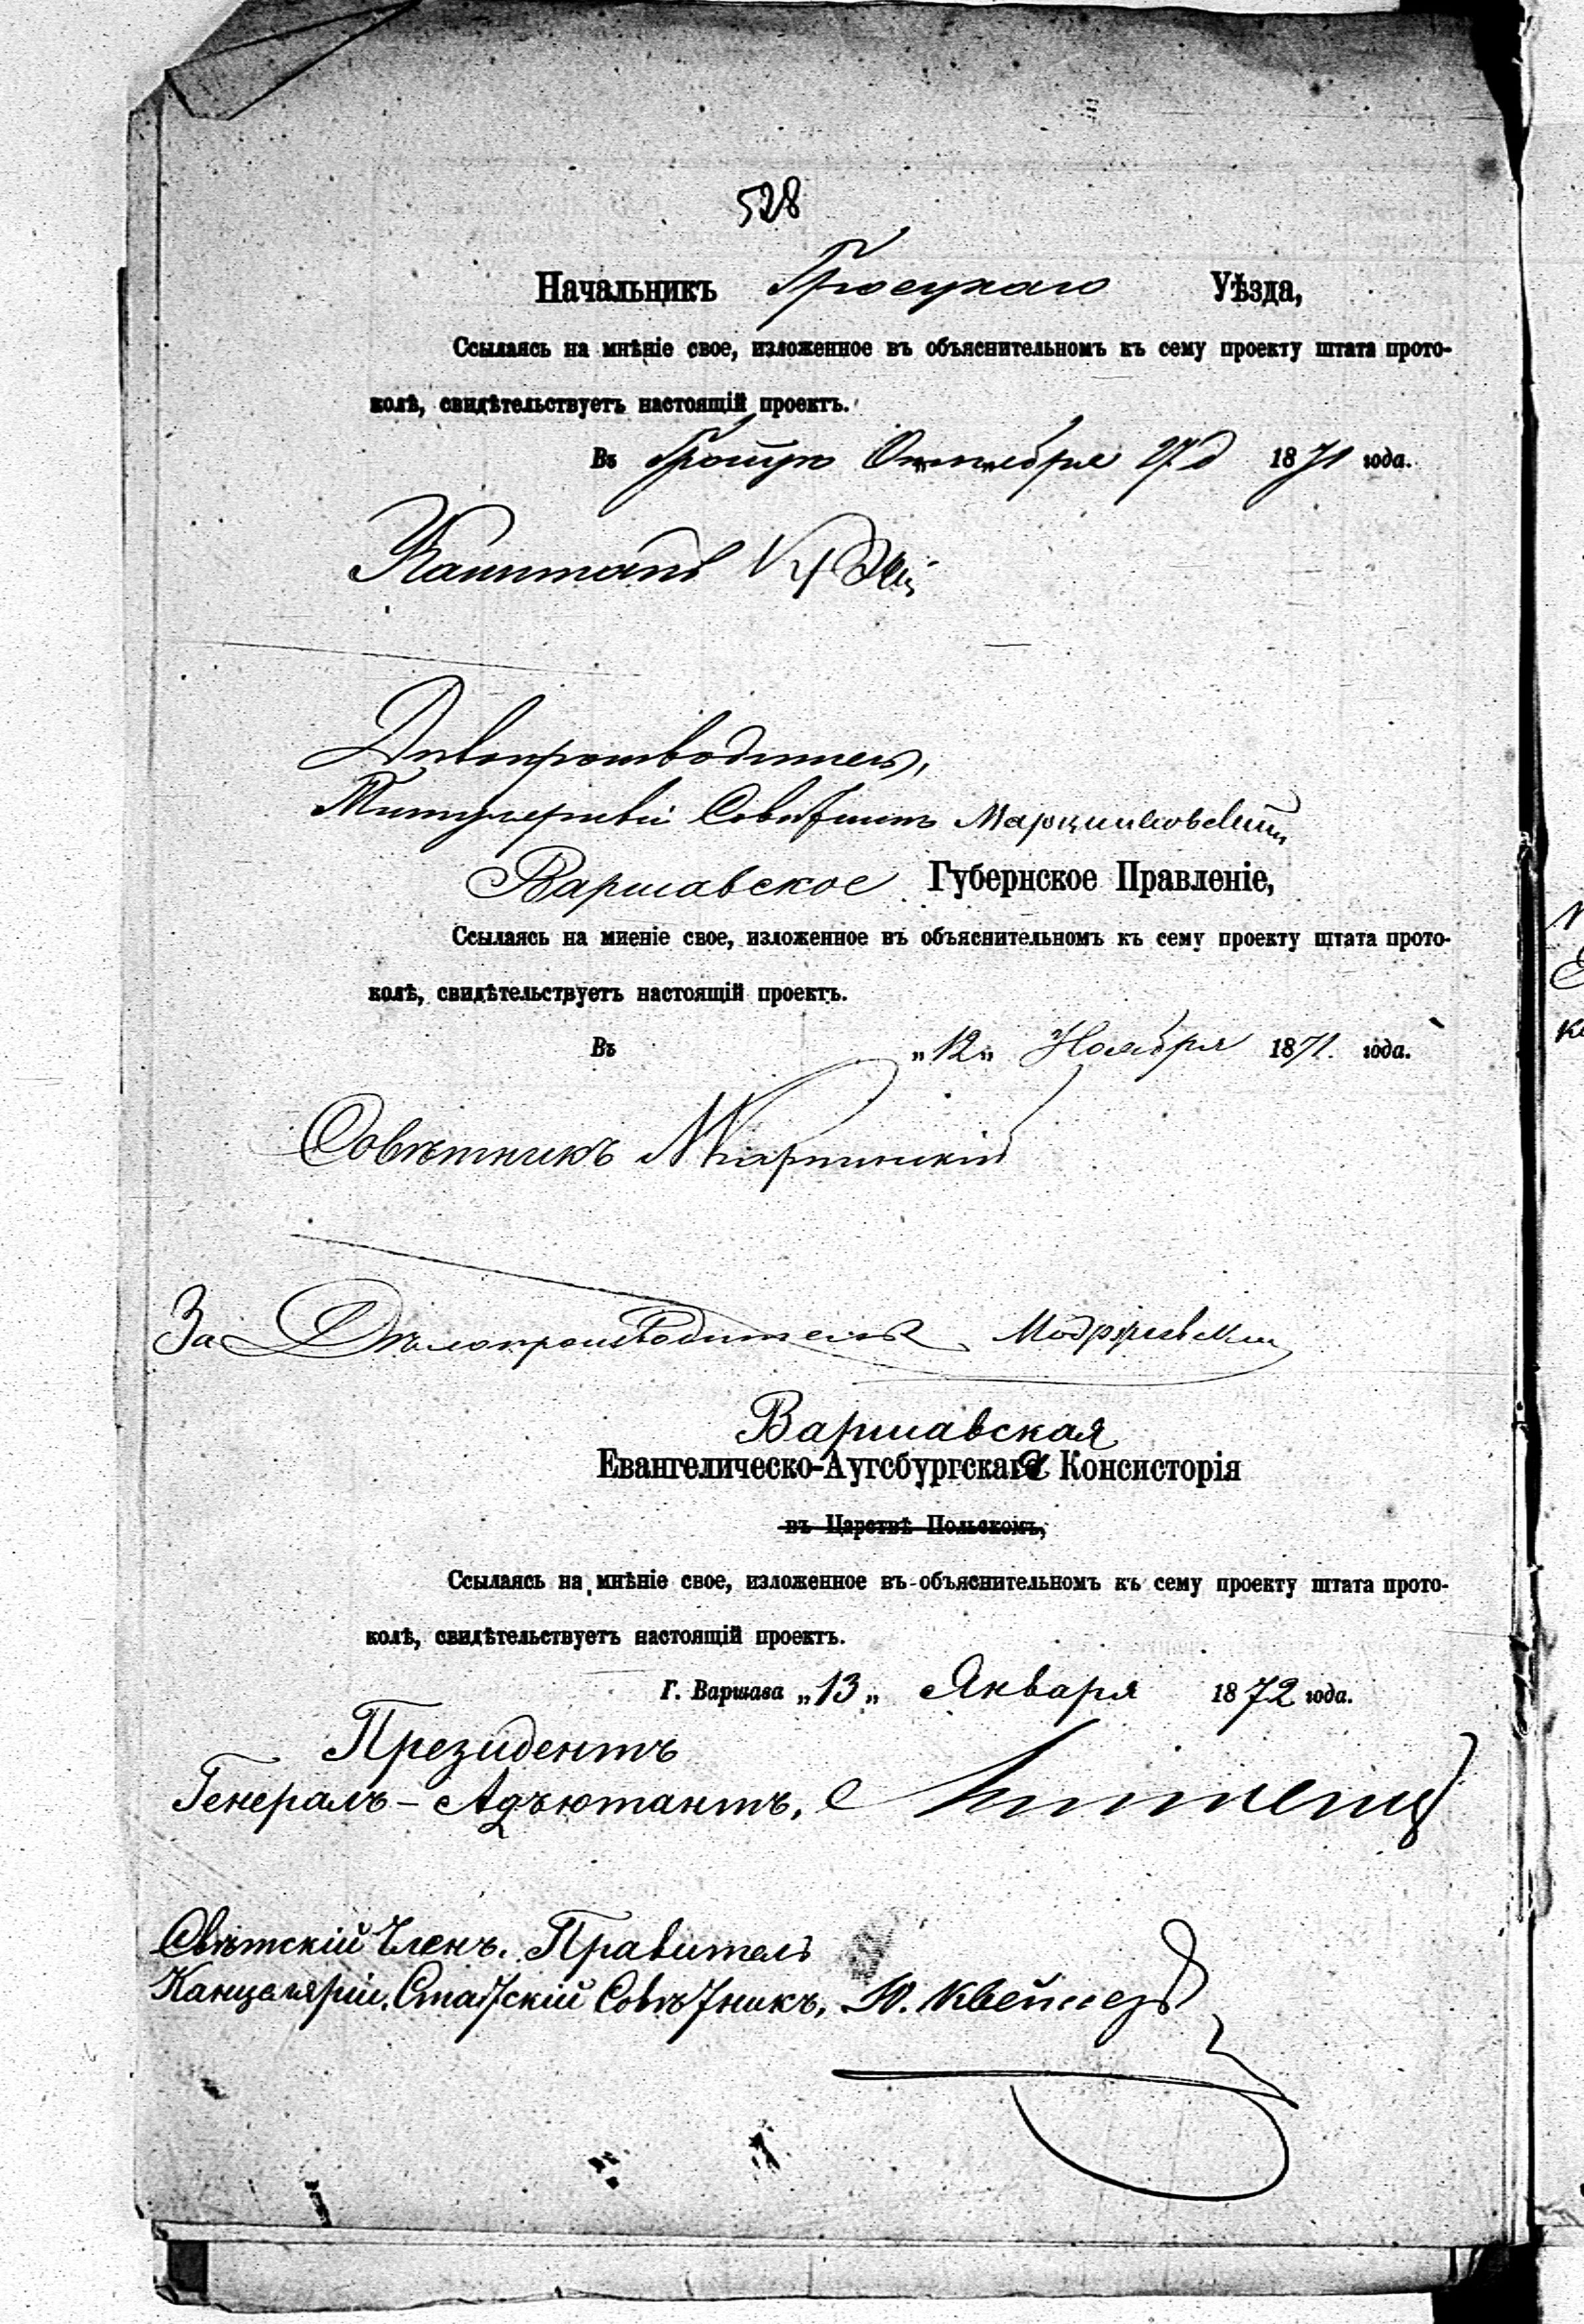 528
Начальникъ Гроецкаго Уѣзда,
Ссылаясь на мнѣніе свое, изложенное въ объяснительномъ къ сему проекту штата прото-
колѣ, свидѣтельствуетъ настоящій проектъ.
Въ Октября 27 д 1871 года.
Капитанъ
Дѣлопроизводитель,
Титулярный Совѣтникъ Марцинковскій
Варшавское Губернское Правленіе,
Ссылаясь на миеніе свое, изложенное въ объяснительномъ къ сему проекту штата прото-
колѣ, свидѣтельствуетъ настоящій проектъ.
Въ „12„ Ноября 1871. года.
Совѣтникъ
За Дѣлопроизводителя
Варшавская
Евангелическо-Аугсбургская Консисторія
въ Царствѣ Польскомъ,
Ссылаясь на мнѣніе свое, изложенное въ объяснительномъ къ сему проекту штата прото-
колѣ, свидѣтельствуетъ настоящій проектъ.
Г. Варшава „13„ Января 1872 года.
Президентъ
Генералъ-Адъютантъ,
Свѣтскій Членъ. Правитель
Канцеляріи, Статскій Совѣтникъ,